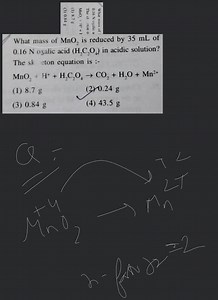 What mass of MnO₂ is reduced by 35 mL of
0.16 N oxalic acid (H₂C₂O₄) in acidic solution?
The sk eton equation is :-
MnO₂ + H⁺ + H₂C₂O₄ → CO₂ + H₂O + Mn²⁺
(1) 8.7 g (2) 0.24 g
(3) 0.84 g (4) 43.5 g
Q :-
+4 2+
MnO₂ → Mn
=2